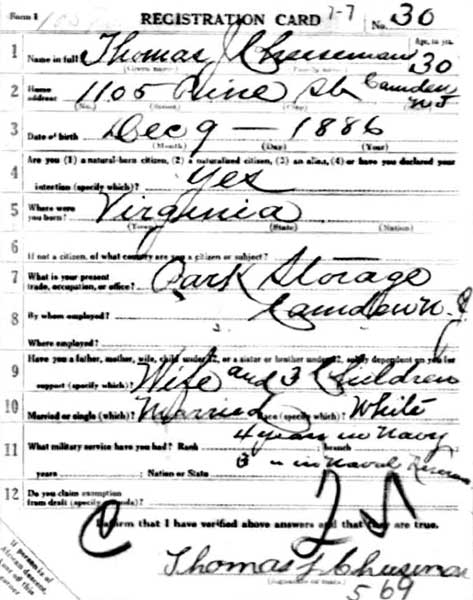 Form 1 REGISTRATION CARD 7-7 No. 30
1 Name in full Thomas J Cheeseman Age, in yrs. 30
(Given name) (Family name)
2 Home address 1105 Pine St Camden NJ
(No.) (Street) (City) (State)
3 Date of birth Dec 9 — 1886
(Month) (Day) (Year)
4 Are you (1) a natural-born citizen, (2) a naturalized citizen, (3) an alien, (4) or have you declared your
intention (specify which)? Yes
5 Where were you born? Virginia
(Town) (State) (Nation)
6 If not a citizen, of what country are you a citizen or subject? —
7 What is your present trade, occupation, or office? Storage
8 By whom employed? Camden N. J
Where employed?
9 Have you a father, mother, wife, child under 12, or a sister or brother under 12, solely dependent on you for
support (specify which)? Wife and 3 Children
10 Married or single (which)? Married Race (specify which)? White
11 What military service have you had? Rank 4 years in Navy ; branch
years 3 " in Naval ; Nation or State
12 Do you claim exemption from draft (specify grounds)?
I affirm that I have verified above answers and that they are true.
Thomas J Cheeseman
(Signature or mark)
569
If person is of African descent, tear off this corner